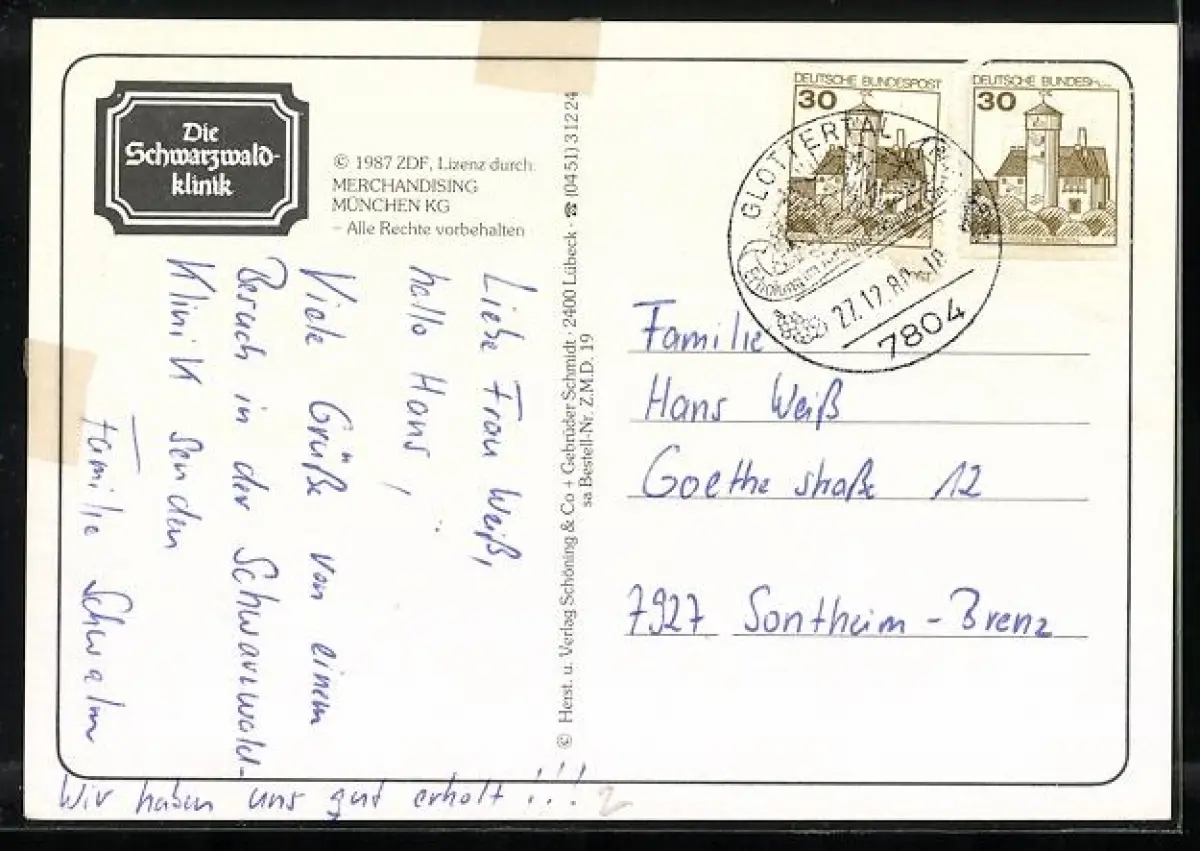 Die
Schwarzwald-
klinik
© 1987 ZDF, Lizenz durch:
MERCHANDISING
MÜNCHEN KG
– Alle Rechte vorbehalten
Liebe Frau Weiß,
hallo Hans,
Viele Grüße von einem
Besuch in der Schwarzwald-
Klinik senden
Familie Schwalm
Wir haben uns gut erholt !!!
© Herst. u. Verlag Schöning & Co + Gebrüder Schmidt · 2400 Lübeck · ☎ (0451) 31224
sa Bestell-Nr. Z.M.D. 19
DEUTSCHE BUNDESPOST
30
DEUTSCHE
30
GLOTTERTAL
Erholung im
27.12.8
7804
Familie
Hans Weiß
Goethe straße 12
7927 Sontheim - Brenz